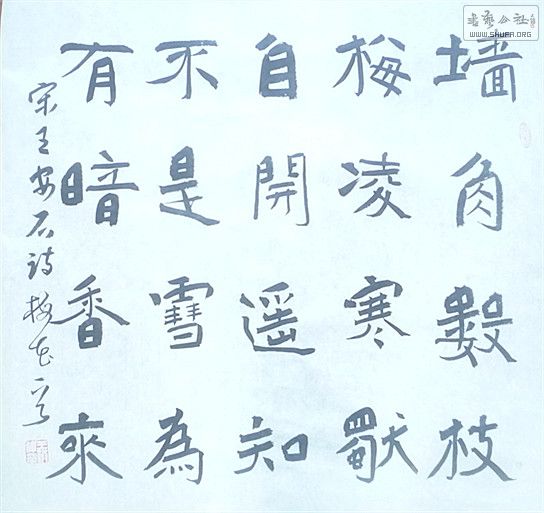 墙角數枝
梅凌寒獨
自開遥知
不是雪為
有暗香來
宋王安石詩梅花一首
書藝公社
WWW.SHUFA.ORG